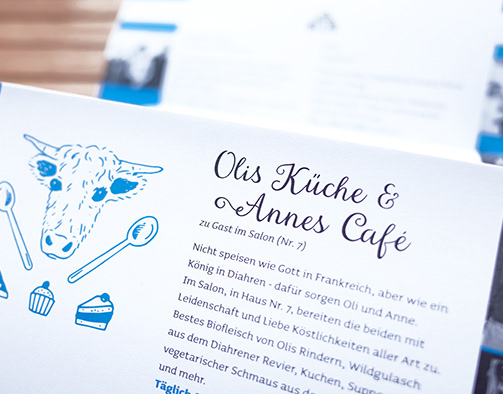 Olis Küche &
Annes Café
zu Gast im Salon (Nr. 7)
Nicht speisen wie Gott in Frankreich, aber wie ein
König in Diahren - dafür sorgen Oli und Anne.
Im Salon, in Haus Nr. 7, bereiten die beiden mit
Leidenschaft und Liebe Köstlichkeiten aller Art zu.
Bestes Biofleisch von Olis Rindern, Wildgulasch
aus dem Diahrener Revier, Kuchen,
vegetarischer Schmaus aus
und mehr.
Täglich